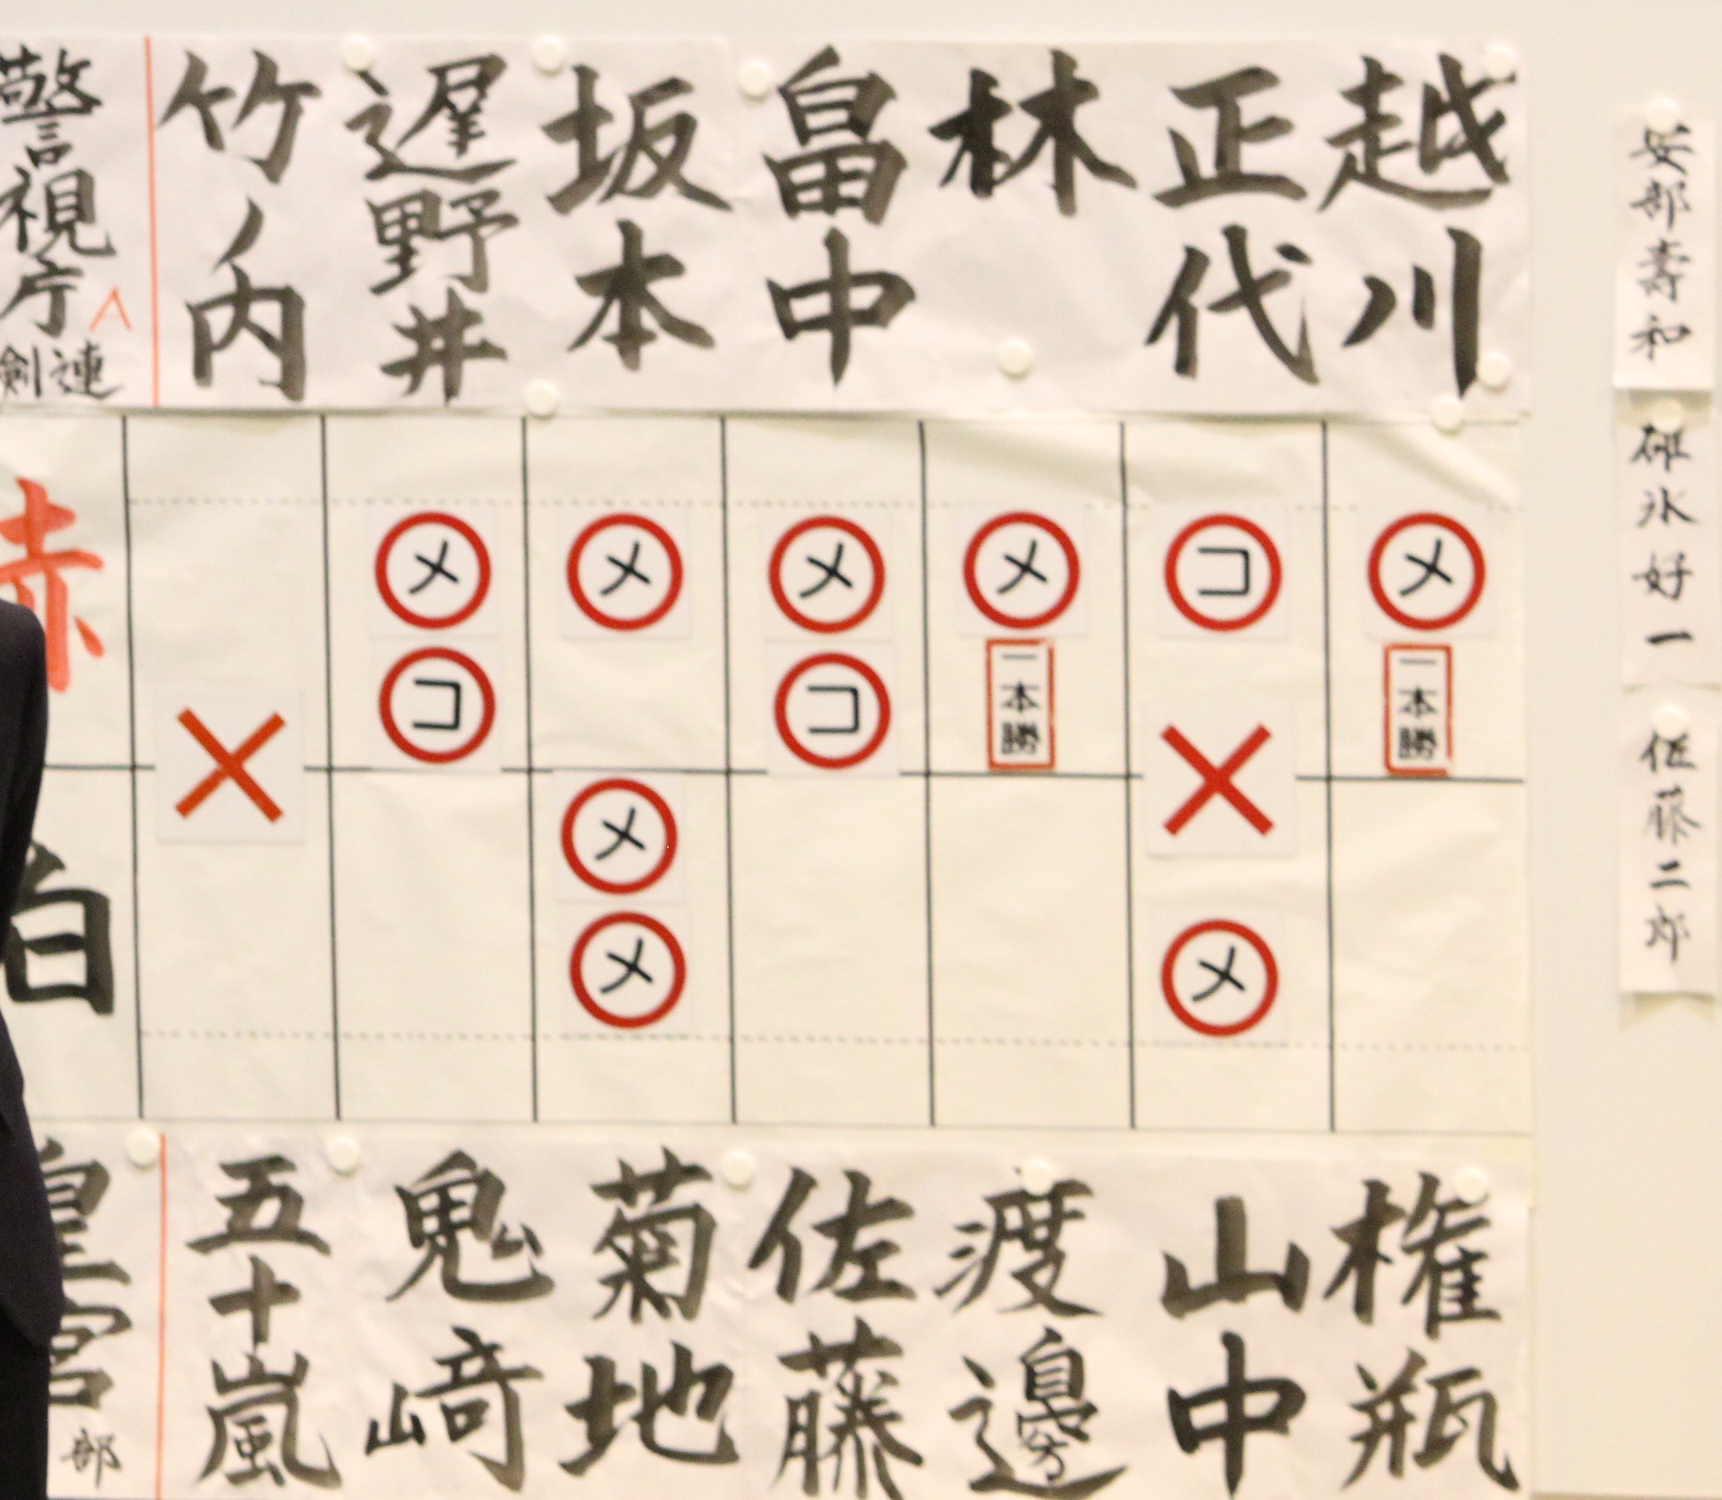 安部壽和
碓氷好一
佐藤二郎
越川
正代
林
畠中
坂本
遅野井
竹ノ内
警視庁
剣連
メ
一本勝
コ
メ
メ
一本勝
メ
コ
メ
メ
メ
メ
コ
赤
白
権瓶
山中
渡邊
佐藤
菊地
鬼﨑
五十嵐
皇宮
部